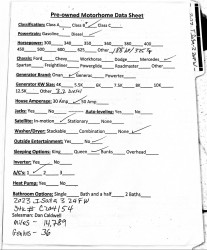 Pre-owned Motorhome Data Sheet
Classification: Class A___ Class B___ Class C___
Powertrain: Gasoline___ Diesel ✓
Horsepower: 300___ 340___ 350___ 360___ 400___
450___ 500___ 600___ 605___ 625___ Other
Chassis: Ford___ Chevy___ Workhorse___ Dodge___ Mercedes
Spartan___ Freightliner___ Powerglide___ Roadmaster___ Other___
Generator Brand: Onan___ Generac___ Powertec___
Generator KW Size: 4K___ 5.5K___ 6K___ 7.5K___ 8K___ 10K___
12.5K___ Other
House Amperage: 30 Amp ___ 50 Amp___
Jacks: Yes___ No___ Auto-leveling: Yes___ No___
Satellite: In-motion___ Stationary___ None___
Washer/Dryer: Stackable___ Combination___ None___
Outside Entertainment: Yes___ No___
Sleeping Options: King___ Queen___ Bunks___ Overhead
Inverter: Yes___ No___
A/C's: 1___ 2___ 3___
Heat Pump: Yes___ No___
Bathroom Options: Single___ Bath and a half___ 2 Baths___
2023 ISATA 3 24FW
Stk# C104154
Salesman: Dan Caldwell
Miles - 14,789
Genius - 36